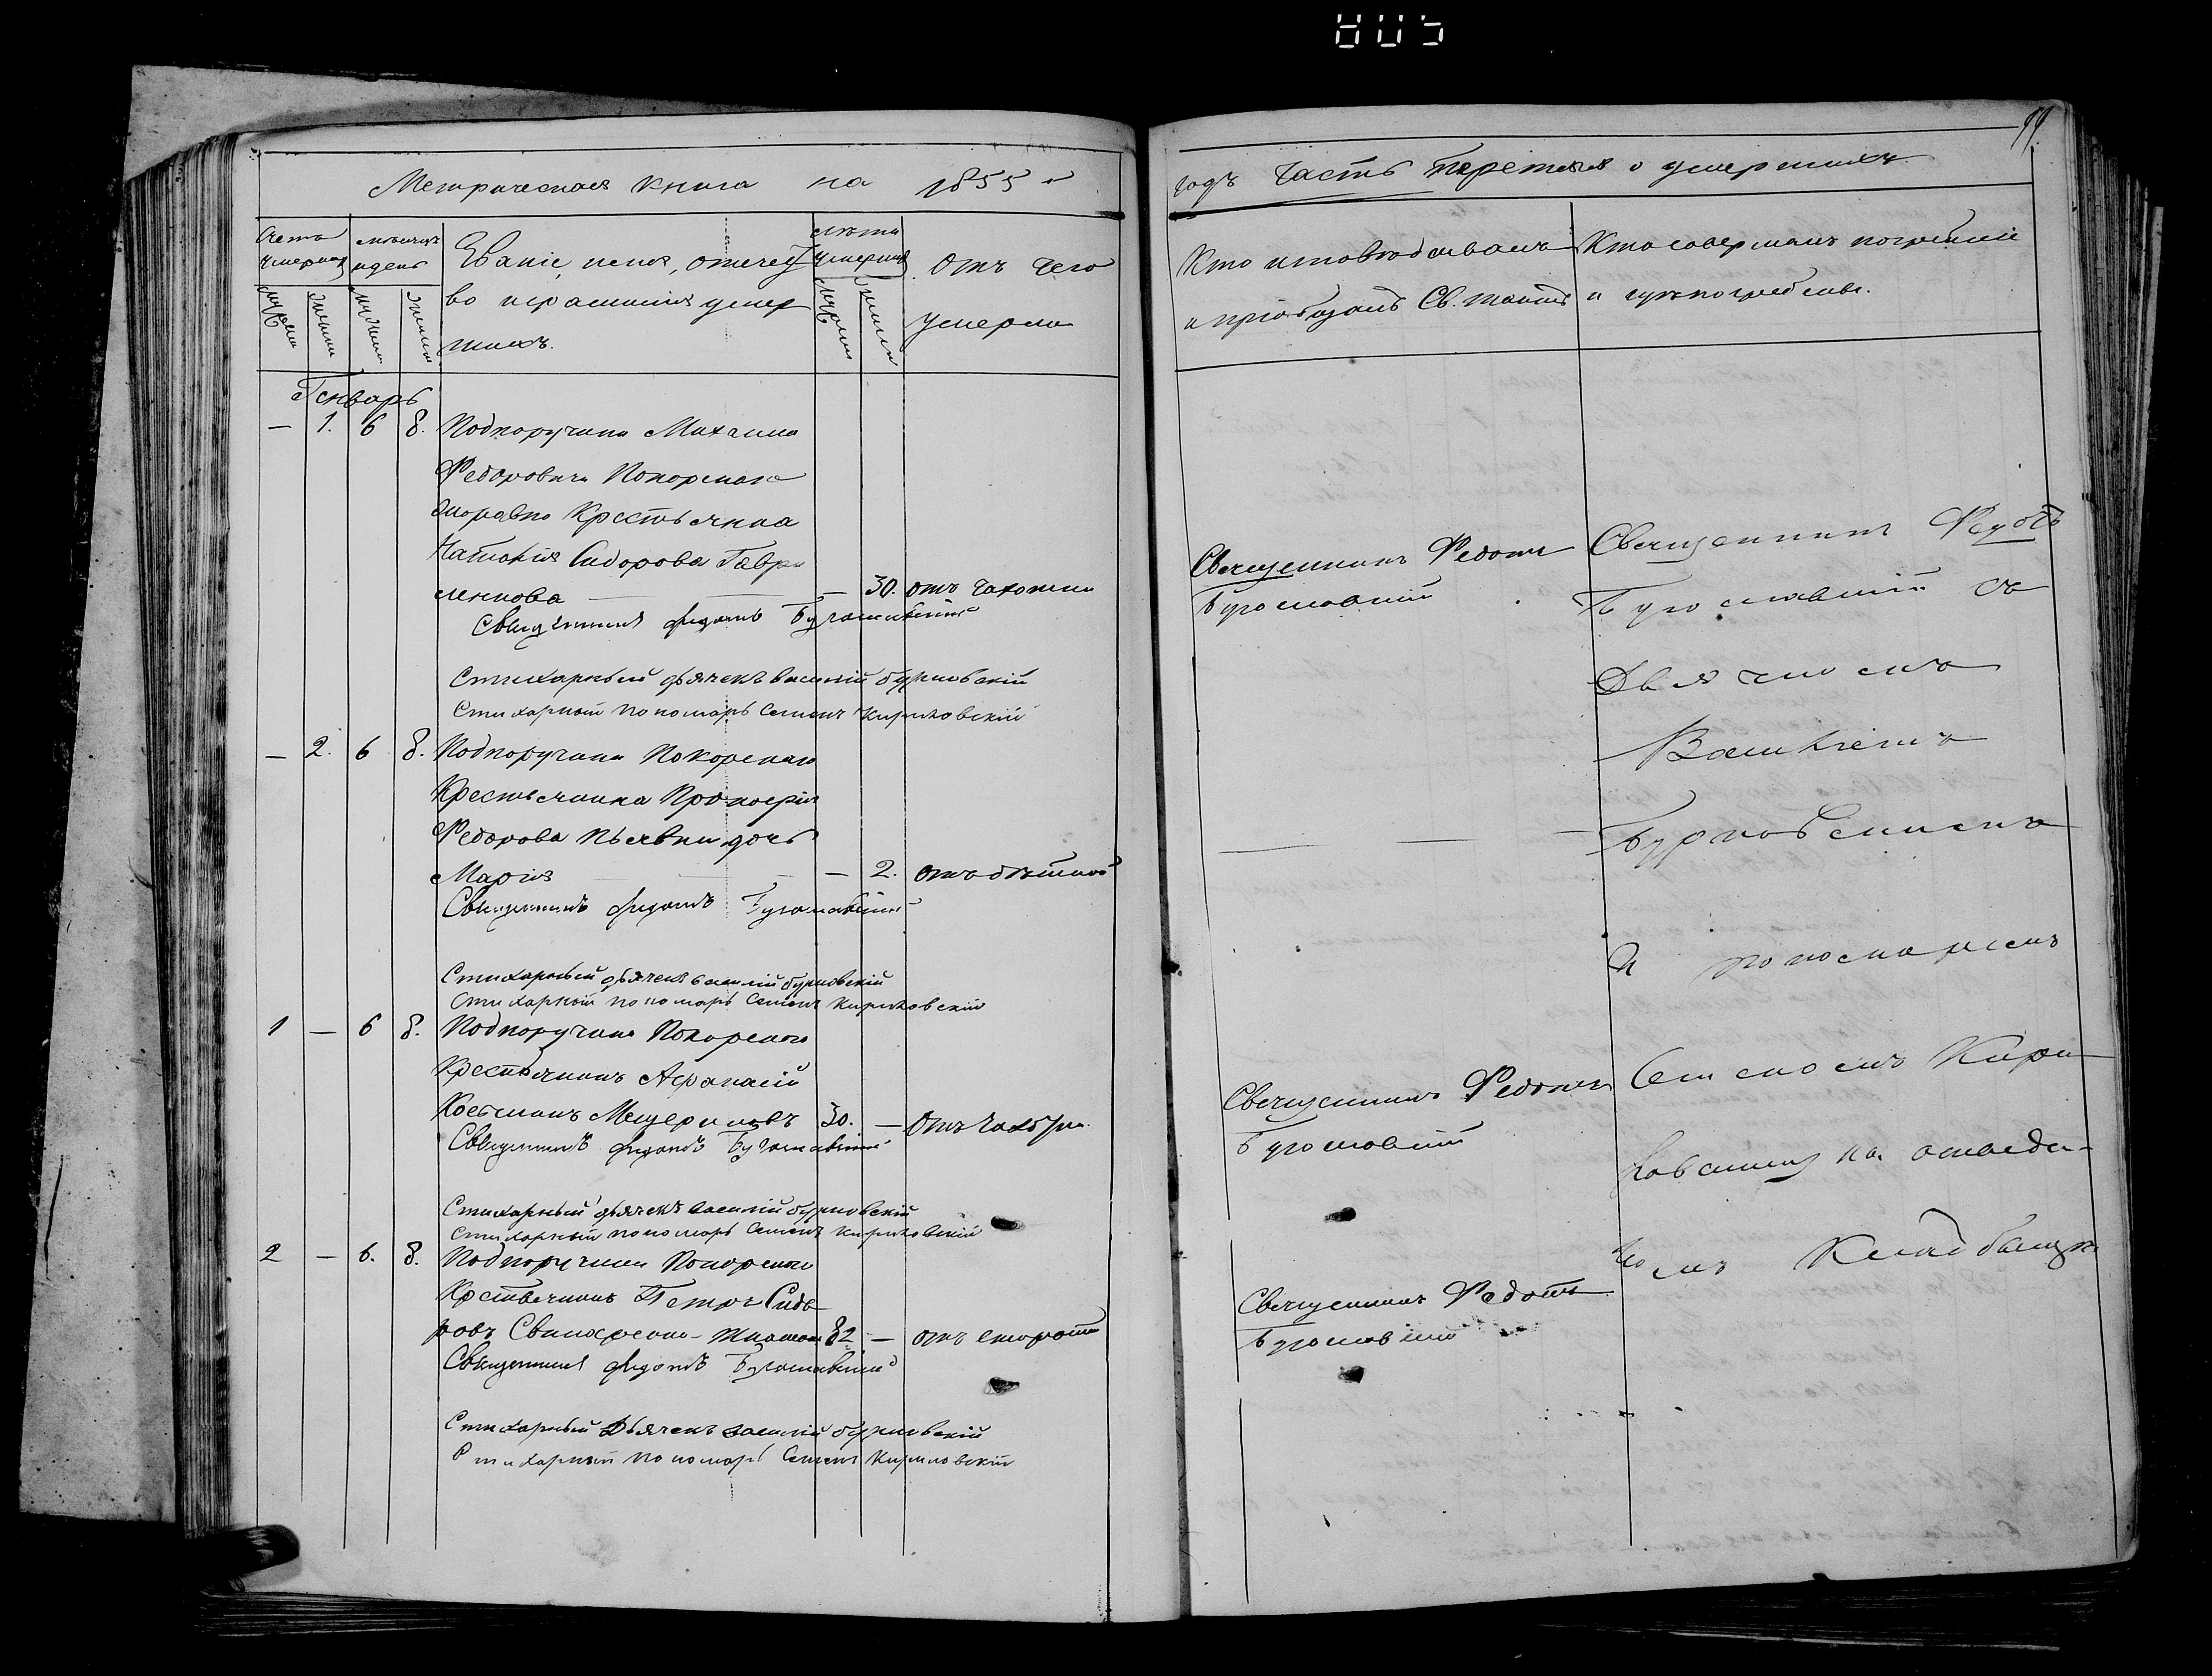 805
99
Метрическая книга на 1855 й
Счетъ умершихъ
мѣсяцъ и день
Званіе, имя, отечест
во и фамилія умер
шихъ.
лѣта умершихъ
Отъ чего
умерли
Генварь
— 1. 6 8. Подпоручика Михаила
Федоровича Покорскаго
Крестьянка
Сидорова Гаври
ленкова — — 30. отъ чахотки
Священникъ Федотъ Бугославскій
Стихарный дьячекъ Василій Бурковскій
Стихарный пономарь Семенъ Кириловскій
— 2. 6 8. Подпоручика Покорскаго
Крестьянина Прокофія
Федорова дочь
Марія — — 2. отъ
Священникъ Федотъ Бугославскій
Стихарный дьячекъ Василій Бурковскій
Стихарный пономарь Семенъ Кириловскій
1 — 6 8. Подпоручика Покорскаго
Крестьянинъ Афанасій
Мещеряковъ 30. — Отъ
Священникъ Федотъ Бугославскій
Стихарный дьячекъ Василій Бурковскій
Стихарный пономарь Семенъ Кириловскій
2 — 6. 8. Подпоручика Покорскаго
Крестьянинъ Петръ Сидо
ровъ 82 — отъ старости
Священникъ Федотъ Бугославскій
Стихарный Дьячекъ Василій Бурковскій
Стихарный пономарь Семенъ Кириловскій
годъ Часть Третья о умершихъ.
Кто исповѣдовалъ
и пріобщалъ Св. таинъ
Кто совершалъ погребеніе
и гдѣ погребены.
Священникъ Федотъ
Бугославскій
Священникъ Федотъ
Бугославскій
Священникъ Федотъ
Бугославскій
Священникъ Федотъ
Бугославскій съ
Дьячкомъ
Василіемъ
Бурковскимъ
и пономаремъ
Семеномъ Кири
ловскимъ на отведен
номъ Кладбищѣ